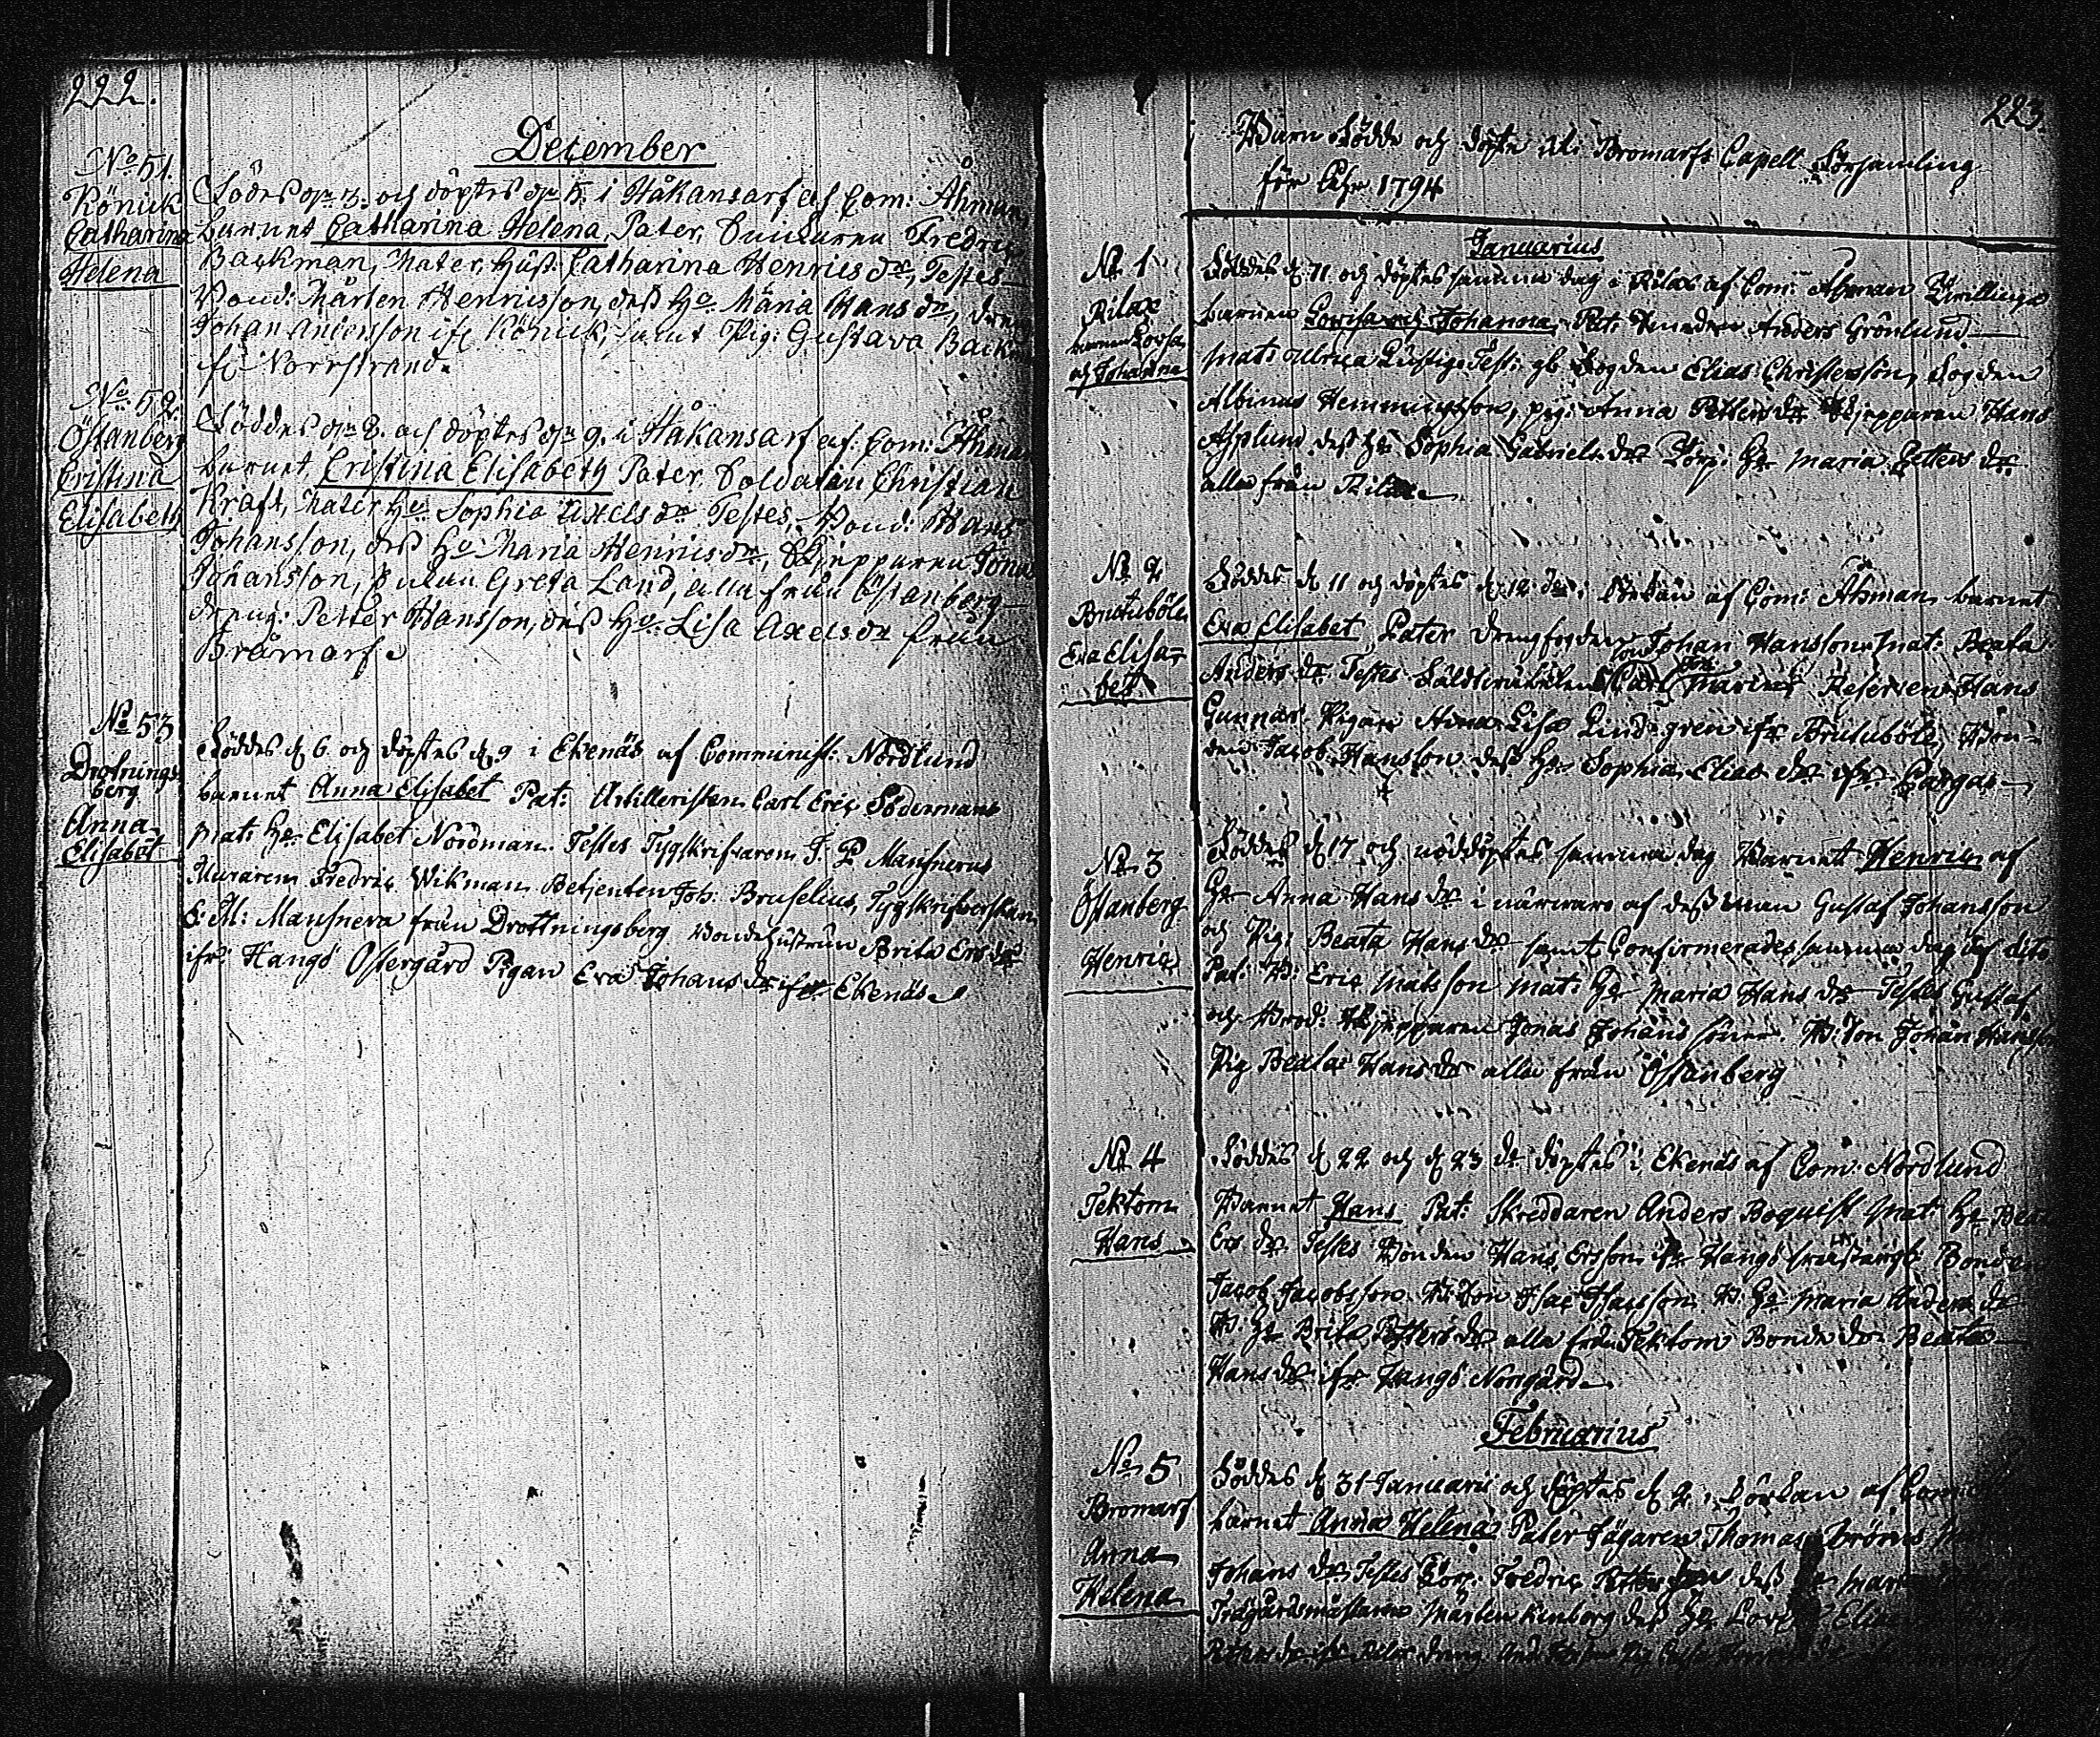 222.
December
No 51.
Könick
Catharina
Helena
Föddes dn 3. och döptes dn 5. i Håkansarf af Com: Åhman
barnet Catharina Helena, Pater, Fredric
Backman, Mater, Hust: Catharina Henrics dr, Testes
Bond: Mårten Henricsson, dess Hu Maria Hans dr, dreng
Johan Andersson ifr Könick, samt Pig: Gustava Back
fr Norrstrand.
No 52
Östanberg
Cristina
Elisabeth
Föddes dn 8. och döptes dn 9. i Håkansarf af Com: Åhman
barnet, Cristina Elisabeth Pater, Soldaten Christian
Kraft, Mater Hu Sophia Axels dr Testes, Bond: Hans
Johansson, dess Hu Maria Henrics dr, Skepparen Jonas
Johansson, Greta Land, alla från Östanberg
dreng: Petter Hansson, dess Hu Lisa Axels dr från
Bråmarf.
No 53
Drotnings
berg
Anna
Elisabet
Föddes d 6 och döptes d. 9 i Ekenäs af Communist: Nordlund
barnet Anna Elisabet Pat: Artilleristen Carl Eric Söderman
Mat: Hu Elisabet Nordman. Testes Tygskrifvaren J. P. Mausnerus
Muraren Fredric Wikman Betjenten Joh: Bruselius, Tygskrifverskan
E: M: Mausnera från Drottningsberg Bondehustrun Brita Ers dr
ifr: Hangö Östergård Pigan Eva Johans dr ifr Ekenäs
223.
Barn Födde och döpte uti Bromarfs Capell Församling
för Åhr 1794
Januarius
No 1
Rilax
barnen Lovisa
och Johanna
Föddes d. 11 och döptes samma dag i Rilax af Com: Åhman Tvillings
barnen Lovisa och Johanna, Pat: Anders Grönlund.
Mat: Ulrica Test: Fogden Elias Christersson, Fogden
Albinus Hemmingsson, pig: Anna Petters dr Skepparen Hans
Asplund dess Hu Sophia Gabriels dr Torp: Hu Maria Petters dr
alla från Rilax
No 2
Brutuböle
Eva Elisa-
bet
Föddes d 11 och döptes d. 12 dr i Kirkan af Com: Åhman barnet
Eva Elisabet Pater drengfogden Johan Hansson Mat: Beata
Anders dr Testes Carl Reserven Hans
Gunnar Pigan Anna Lisa Lindgren ifr Brutuböle, Bon-
den Jacob Hansson dess Hu Sophia Elias dr ifr Bargas
No 3
Östanberg
Henric
Föddes d 17 och nöddöptes samma dag Barnet Henric af
Hu Anna Hans dr i närvaro af dess man Gustaf Johansson
och Pig: Beata Hans dr samt Confirmerades samma dag af dito
Pat: B: Eric Matsson Mat: Hu Maria Hans dr Testes Gustaf
och Brod: Skepparen Jonas Johans söner. B: Son Johan Hansson
Pig Beata Hans dr alla från Östanberg
No 4
Tektom
Hans
Föddes d 22 och d 23 dr döptes i Ekenäs af Com: Nordlund
Barnet Hans Pat: Skreddaren Anders Boquist Mat: Hu Beata
Ers dr Testes Bonden Hans Ersson ifr Hangö Bonden
Jacob Jacobsson B: Son Isac Isacsson B: Hu Maria Anders dr
B: Hu Brita Petters dr alla från Tektom Bonde dr Beata
Hans dr ifr Hangö Norrgård
Februarius
No 5
Bromarf
Anna
Helena
Föddes d 31 Januarii och döptes d 2 i Kirkan af Com:
barnet Anna Helena Pater Jägaren Thomas Brörus
Johans dr Testes Torp: Fredric Petterson dess Hu
Trägårdsmästaren Mårten Kinborg dess Hu